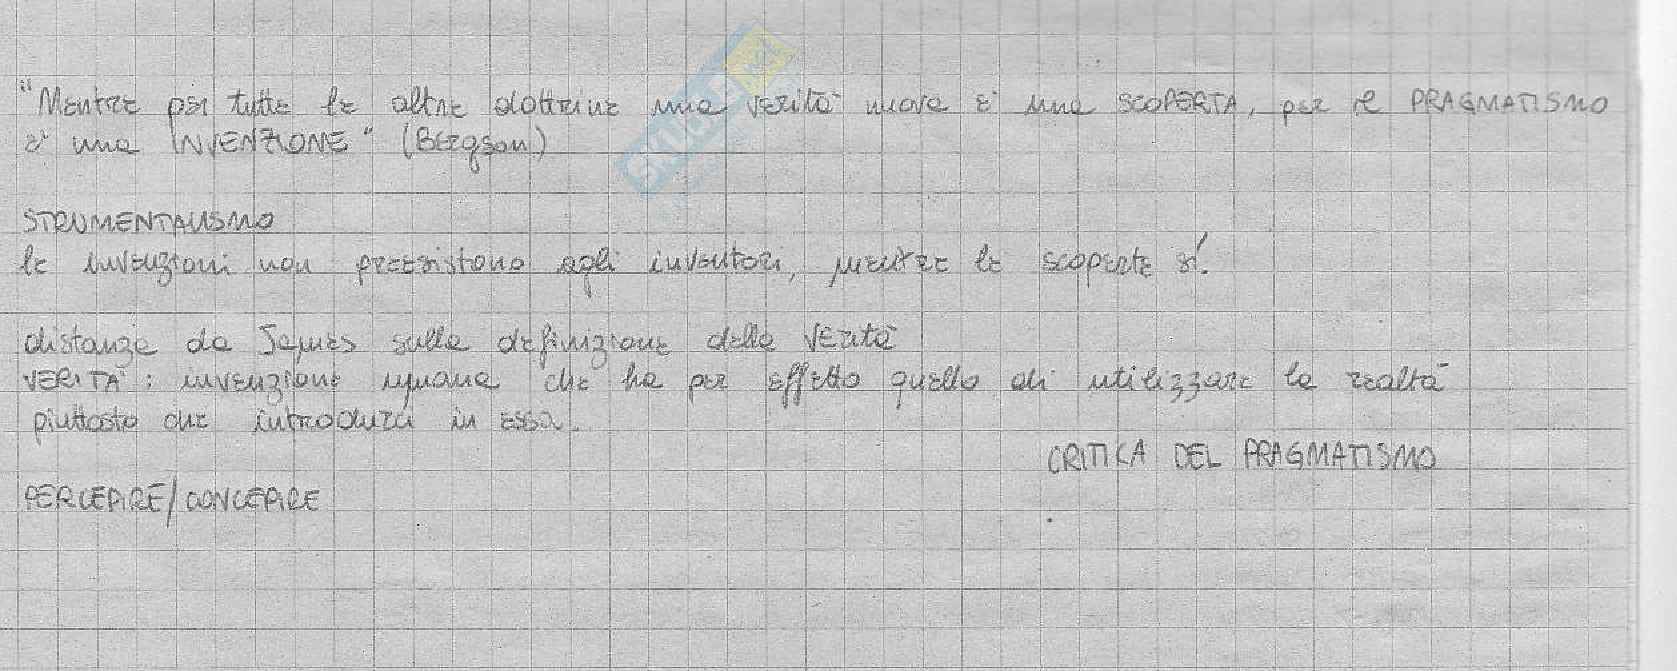 "Mentre per tutte le altre dottrine una verità nuova è una SCOPERTA, per il PRAGMATISMO
è una INVENZIONE" (Bergson)
STRUMENTALISMO
le invenzioni non preesistono agli inventori, mentre le scoperte sì.
distanza da James sulla definizione della verità
VERITÀ: invenzione umana che ha per effetto quello di utilizzare la realtà
piuttosto che introdurci in essa.
CRITICA DEL PRAGMATISMO
PERCEPIRE/CONCEPIRE